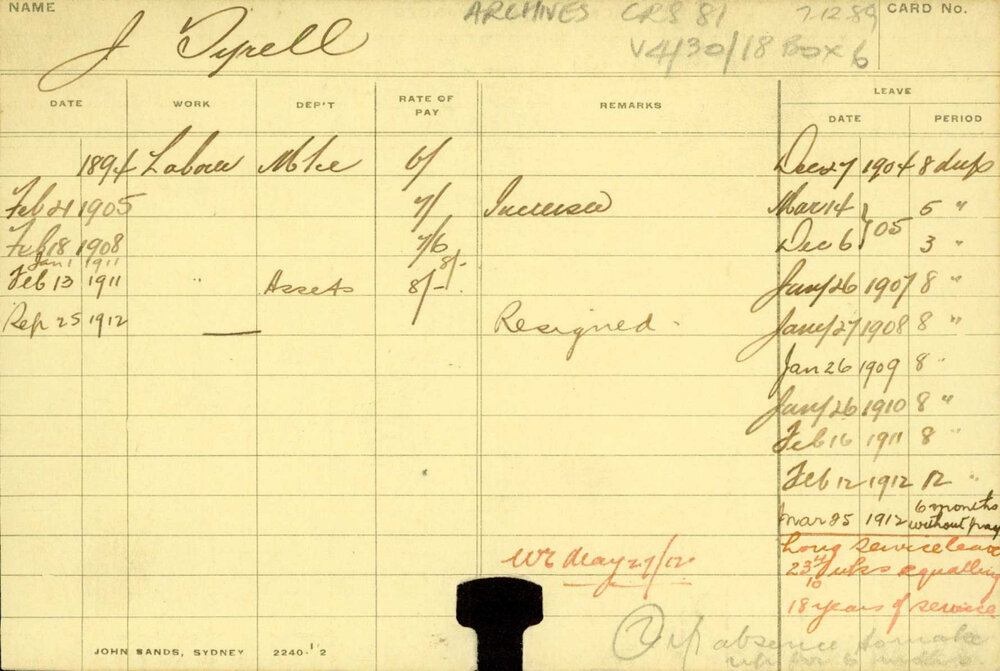 NAME ARCHIVES CRS 81 7.12.89 CARD No.
J Tyrell V4/30/18 Box 6
LEAVE
DATE WORK DEP'T RATE OF PAY REMARKS DATE PERIOD
1894 Labour Mkt 6/ Dec 27 1904 8 days
Feb 21 1905 7/ Increase Mar 14 } 05 5 "
Feb 18 1908 7/6 Dec 6 3 "
Jan 1 1911 8/-
Feb 13 1911 " Assets 8/- Jany 26 1907 8 "
Sep 25 1912 — Resigned. Jany 27 1908 8 "
Jan 26 1909 8 "
Jany 26 1910 8 "
Feb 16 1911 8 "
Feb 12 1912 12 "
Mar 25 1912 6 months without pay
Long service leave
WE May 27/12 23 4/10 wks equalling
18 years of service
absence to make
up for 6 months
JOHN SANDS, SYDNEY 2240-1/2